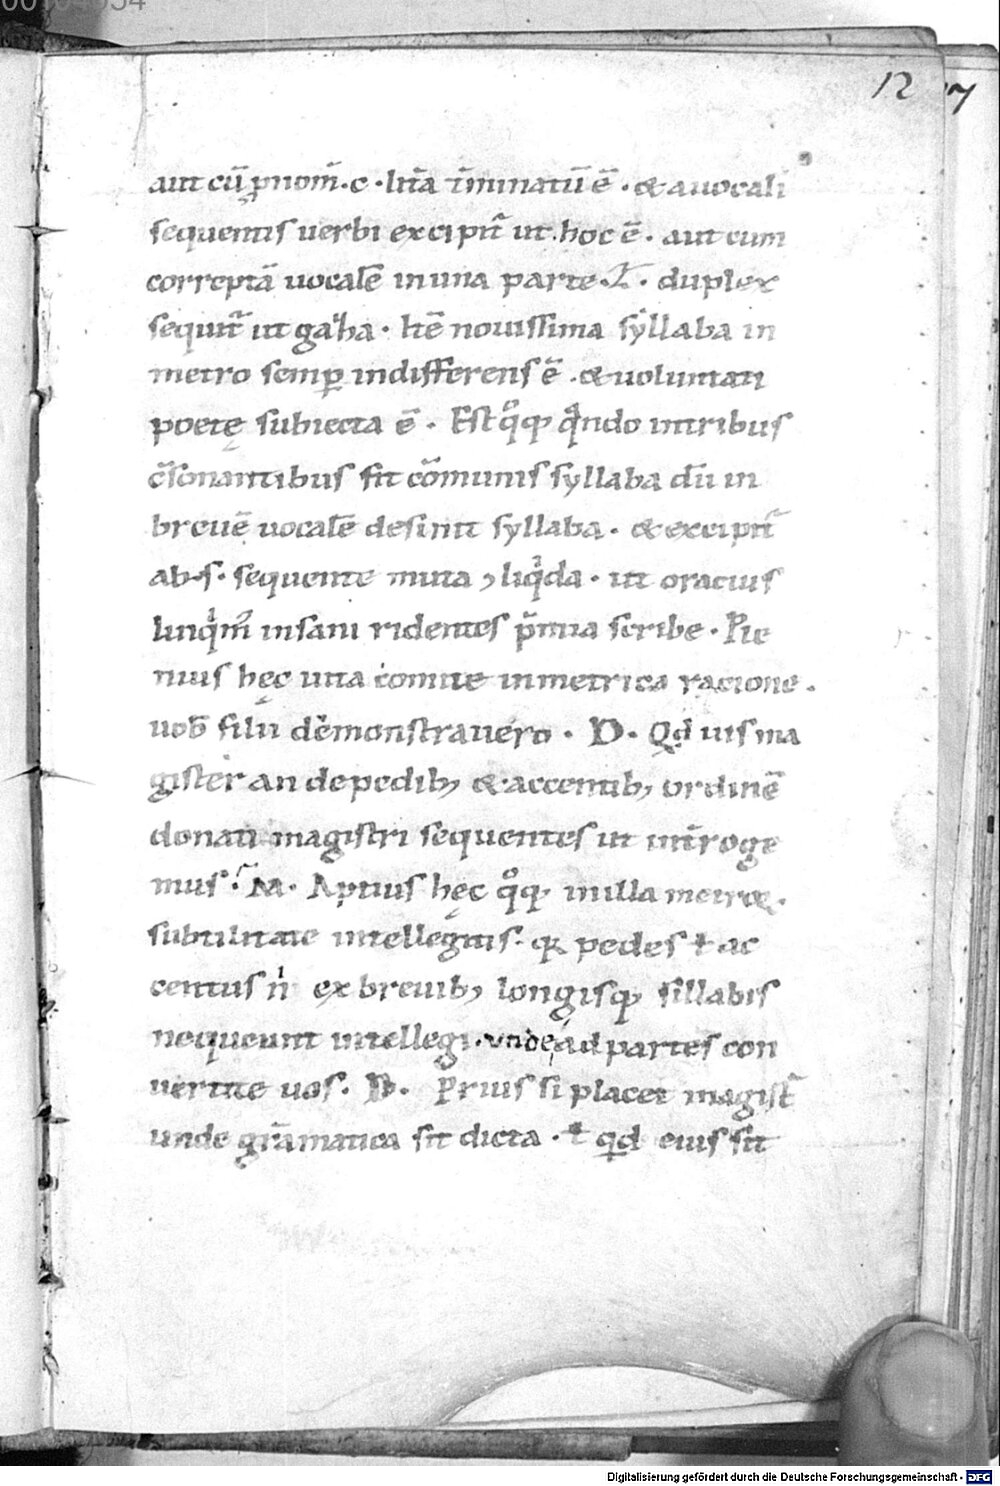 00104554
12 7
aut cū ꝓnom̄. c. litt̄a t̄minatū ē. & a uocali
sequentis uerbi excipit᷑ ut. hoc ē. aut cum
correptā uocalē in una parte. Z. duplex
sequit᷑ ut gaza. Itē nouissima syllaba in
metro semꝑ indifferens ē. & uoluntati
poetę subiecta ē. Est qͦqꝫ qͣndo in tribus
c̄sonantibus fit cōmunis syllaba dū in
breuē uocalē desinit syllaba. & excipit᷑
ab .s. sequente muta ⁊ liqͥda. ut oracius
linqͥm᷒ insani ridentes p̄mia scribe. Ple
nius hęc uita comite in metrica racione.
uob̄ filii demonstrauero. D. Qd uis ma
gister an de pedibꝫ & accentibꝫ ordinē
donati magistri sequentes ut int̄roge
mus. M. Aptius hęc qͦqꝫ in illa metricę.
subtilitate intellegitis. qꝛ pedes ł ac
centus nͥ ex breuibꝫ longisqꝫ sillabis
nequeunt intellegi. unde ad partes con
uertite uos. D. Prius si placet magist᷑
unde grāmatica sit dicta. ł qd eius sit
Digitalisierung gefördert durch die Deutsche Forschungsgemeinschaft - DFG